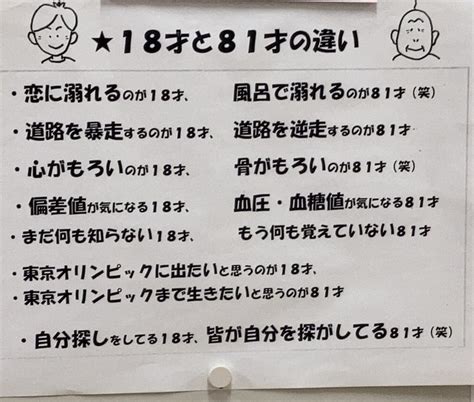 ★18才と81才の違い
・恋に溺れるのが18才、 風呂で溺れるのが81才(笑)
・道路を暴走するのが18才、 道路を逆走するのが81才
・心がもろいのが18才、 骨がもろいのが81才(笑)
・偏差値が気になる18才、 血圧・血糖値が気になる81才
・まだ何も知らない18才、 もう何も覚えていない81才
・東京オリンピックに出たいと思うのが18才、
・東京オリンピックまで生きたいと思うのが81才
・自分探しをしてる18才、皆が自分を探がしてる81才(笑)